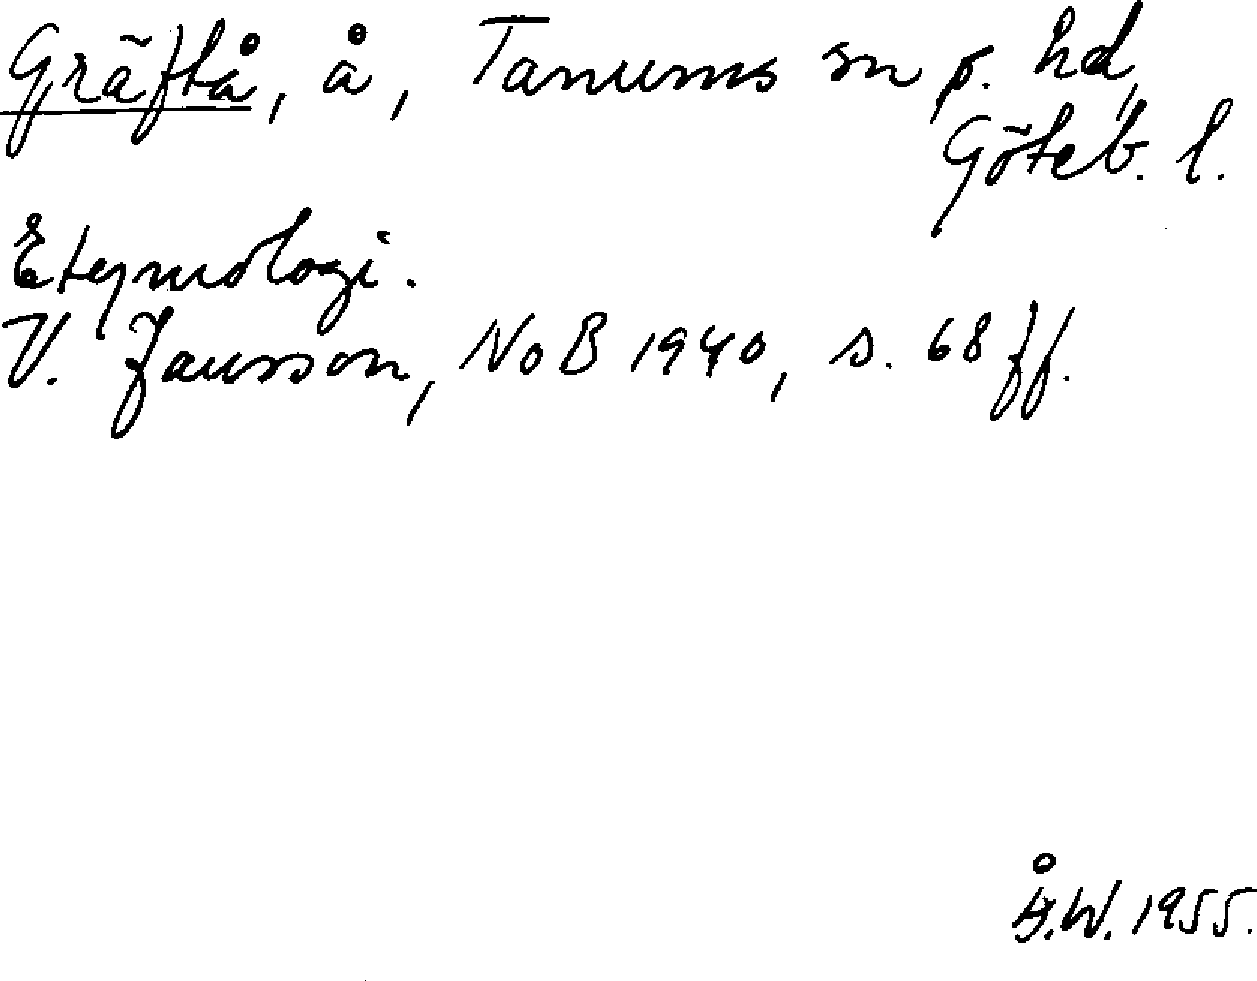 Gräftå, å, Tanums sn o. hd,
Göteb. l.
Etymologi.
V. Jansson, NoB 1940, s. 68 ff.
Å.W. 1955.